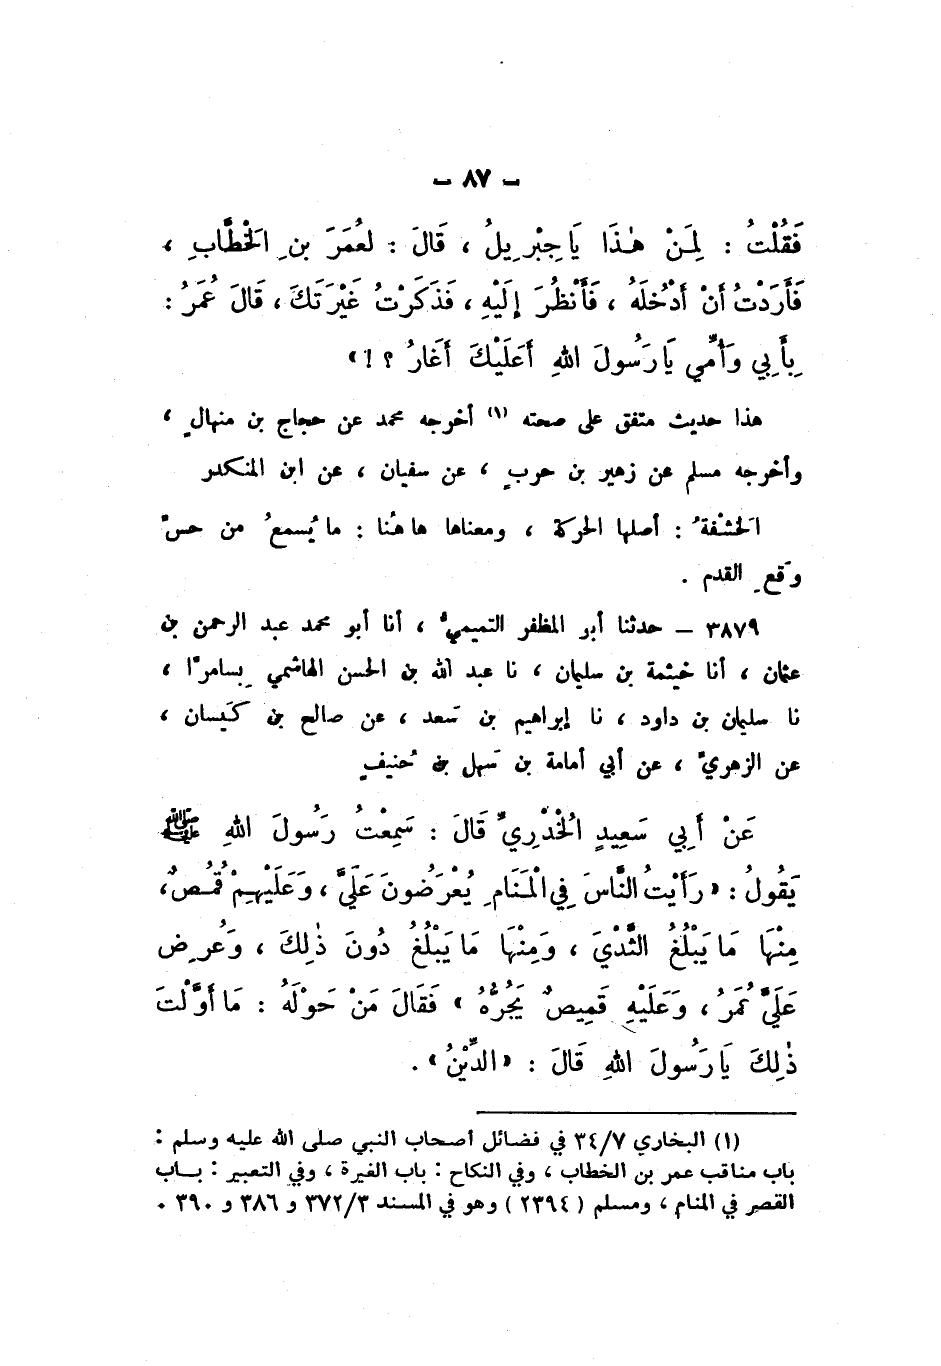 - ٨٧ -
فَقُلْتُ : لِمَنْ هٰذَا يَا جِبْرِيلُ ، قَالَ : لعُمَرَ بنِ الخَطَّابِ ،
فَأَرَدْتُ أَنْ أَدْخُلَهُ ، فَأَنْظُرَ إِلَيْهِ ، فَذَكَرْتُ غَيْرَتَكَ ، قَالَ عُمَرُ :
بِأَبِي وَأُمِّي يَا رَسُولَ اللهِ أَعَلَيْكَ أَغَارُ ؟ ! »
هذا حديث متفق على صحته (١) أخرجه محمد عن حجاج بن منهالٍ ،
وأخرجه مسلم عن زهير بن حربٍ ، عن سفيان ، عن ابن المنكدر
الخَشْفَةُ : أصلها الحركة ، ومعناها هاهُنا : ما يُسمعُ من حسّ
وَقعِ القدم .
٣٨٧٩ - حدثنا أبو المظفر التميميُّ ، أنا أبو محمد عبد الرحمن بن
عثمان ، أنا خيثمة بن سليمان ، نا عبد الله بن الحسن الهاشمي بِسامرّا ،
نا سليمان بن داود ، نا إبراهيم بن سَعد ، عن صالح بن كَيسان ،
عن الزهريّ ، عن أبي أمامة بن سَهل بن حُنيفٍ
عَنْ أَبِي سَعِيدٍ الْخُدْرِيِّ قَالَ : سَمِعْتُ رَسُولَ اللهِ ﷺ
يَقُولُ : « رَأَيْتُ النَّاسَ فِي الْمَنَامِ يُعْرَضُونَ عَلَيَّ ، وَعَلَيْهِمْ قُمُصٌ ،
مِنْهَا مَا يَبْلُغُ الثَّدْيَ ، وَمِنْهَا مَا يَبْلُغُ دُونَ ذٰلِكَ ، وَعُرِضَ
عَلَيَّ عُمَرُ ، وَعَلَيْهِ قَمِيصٌ يَجُرُّهُ » فَقَالَ مَنْ حَوْلَهُ : مَا أَوَّلْتَ
ذٰلِكَ يَا رَسُولَ اللهِ قَالَ : « الدِّيْنُ » .
(١) البخاري ٣٤/٧ في فضائل أصحاب النبي صلى الله عليه وسلم :
باب مناقب عمر بن الخطاب ، وفي النكاح : باب الغيرة ، وفي التعبير : بـاب
القصر في المنام ، ومسلم ( ٢٣٩٤ ) وهو في المسند ٣٧٢/٣ و ٣٨٦ و ٣٩٠ .